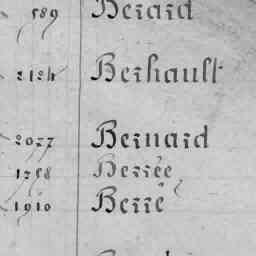 589 Berard
2124 Berhault
2077 Bernard
1758 Berrée
1910 Berré